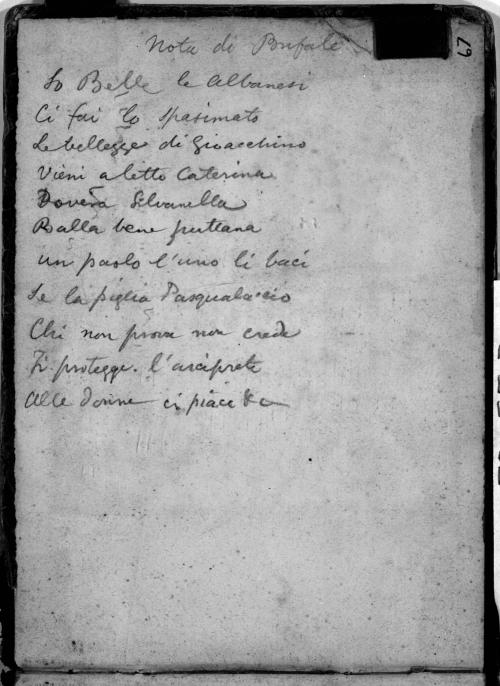 Nota di Bufale
So Belle le Albanesi
Ci fai lo Spasimato
Le bellezze di Gioacchino
Vieni a letto Caterina
Povera Silvanella
Balla bene puttana
un paolo l'uno li baci
Se la piglia Pasqualaccio
Chi non prova non crede
Ti protegge l'arciprete
Alle donne ci piace &c
67